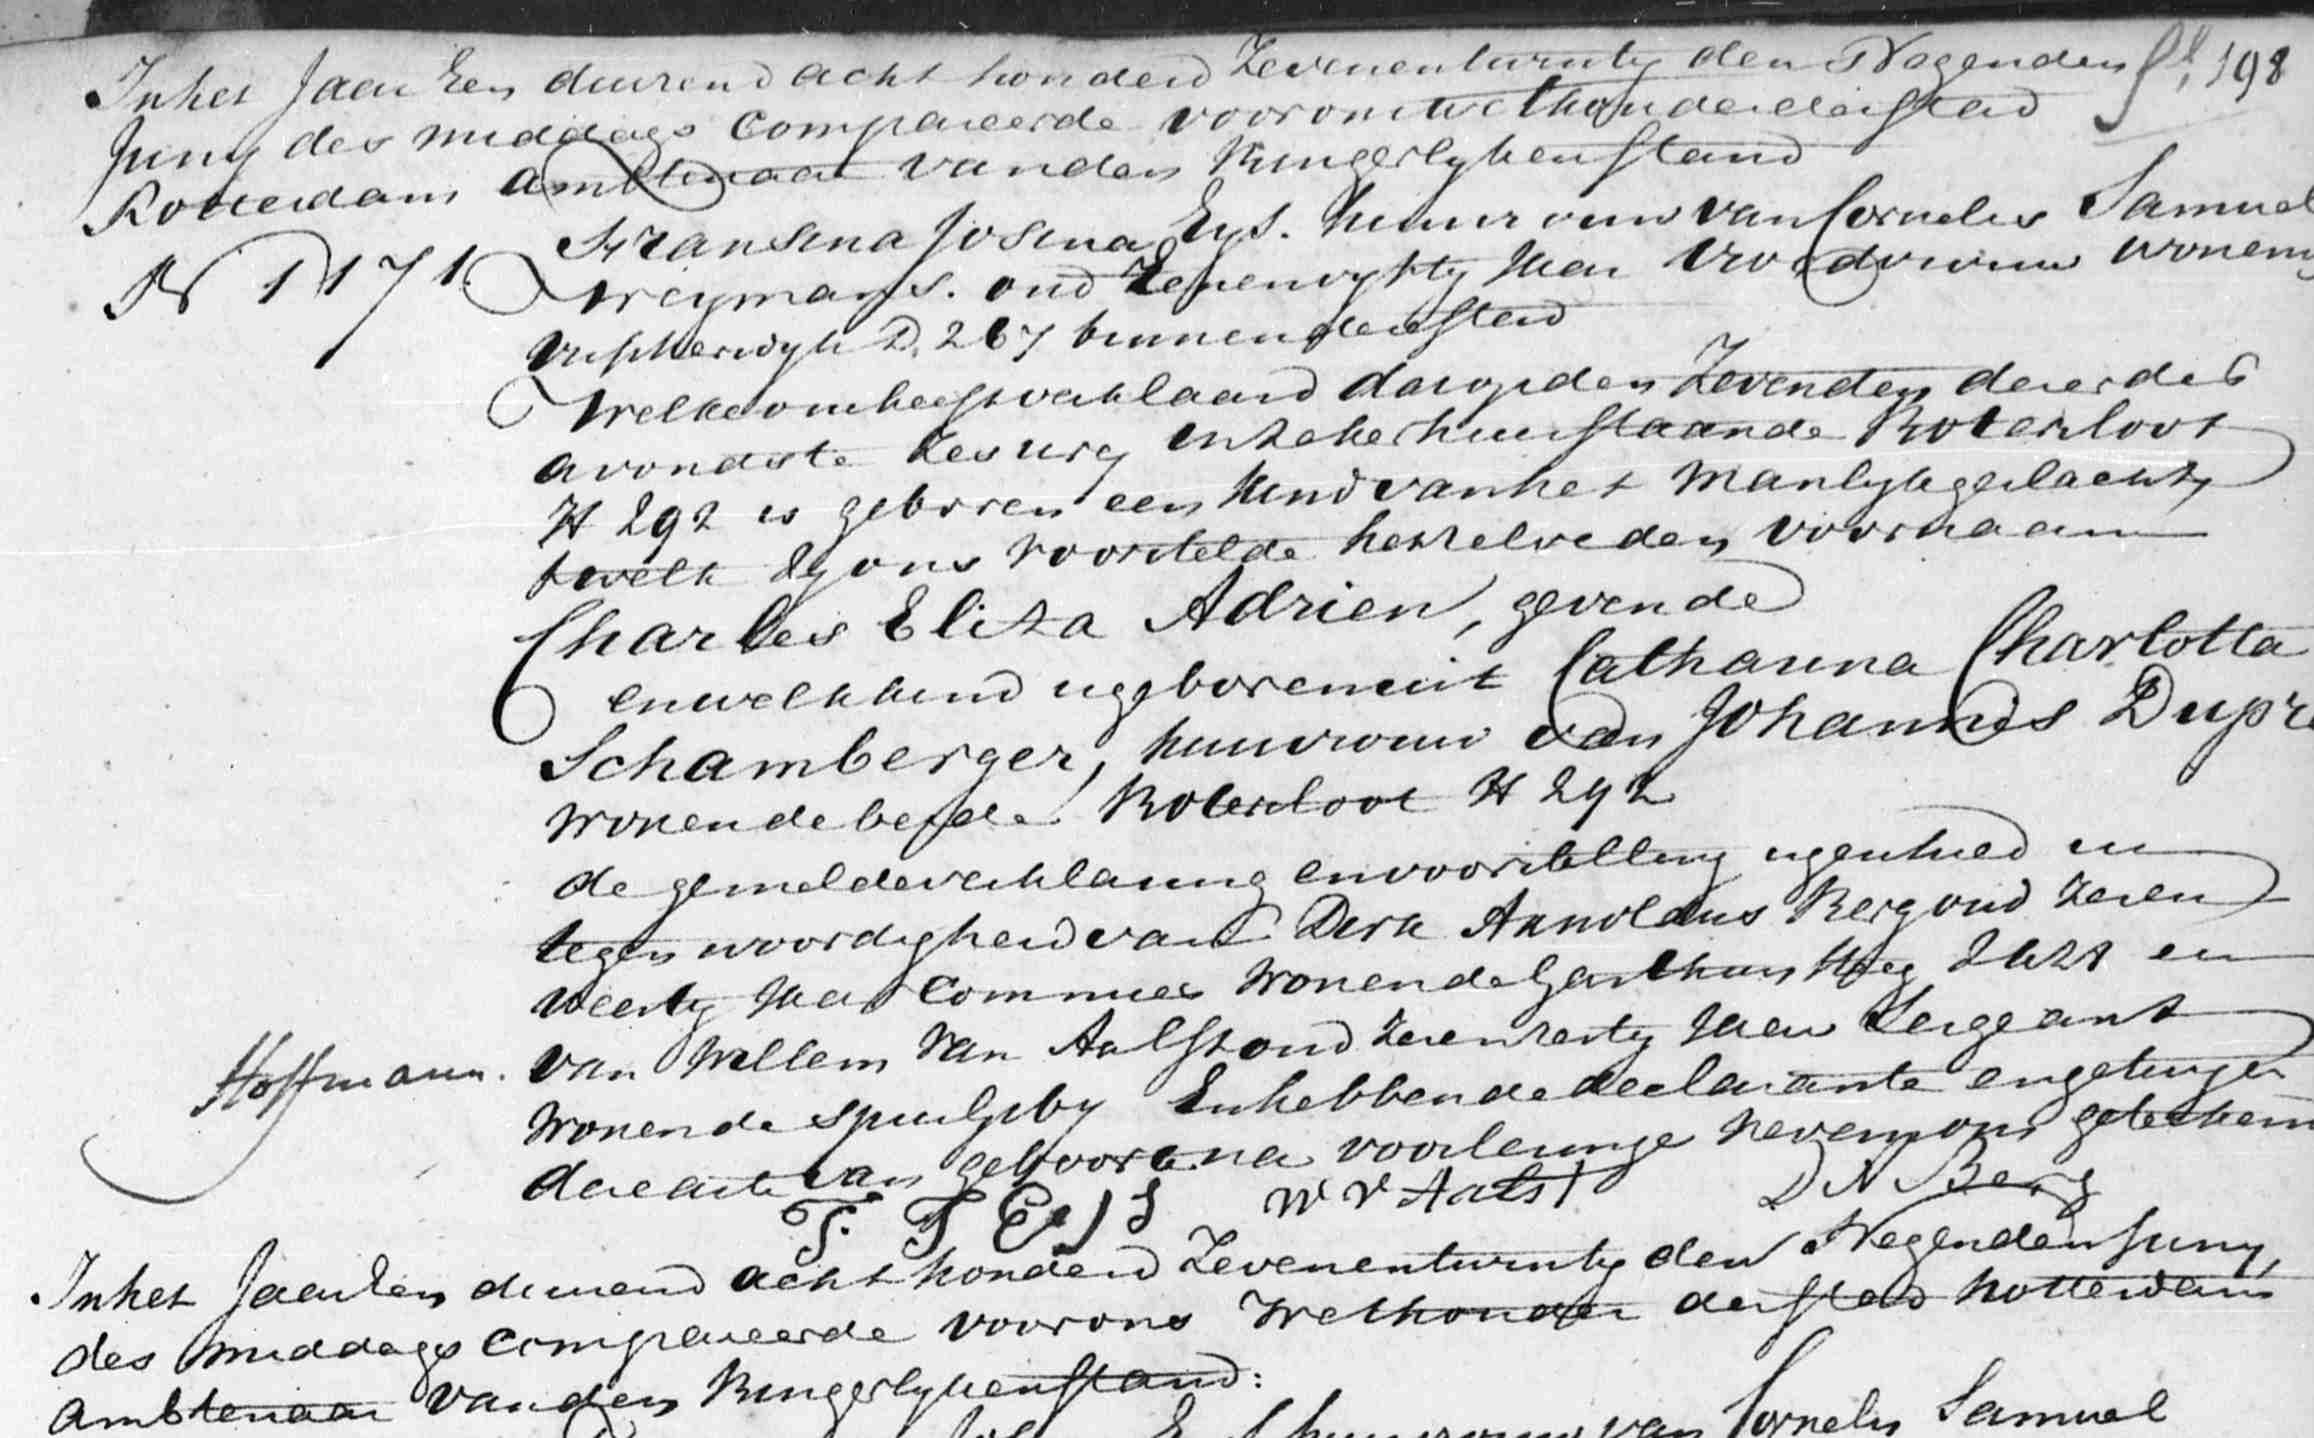 In het Jaar Een duizend acht honderd Zevenentwintig den Negenden fl. 198
Juny des middags Compareerde voor ons Wethouder der Stad
Rotterdam Ambtenaar van den Burgerlyken Stand
N 1171. Fransina Josina Eys. huisvrouw van Cornelis Samuel
Weymans. oud Zevenenvyftig Jaar Vroedvrouw wonende
Visscherdyk D. 267 binnen deze Stad
Welke ons heeft verklaard dat op den Zevenden dezer des
avonds te Zes uren in zeker huis staande Botersloot
H 292 is geboren een kind van het Manlyk geslacht,
twelk Zy ons voorstelde hetzelve den voornaam
Charles Eliza Adrien, gevende
en welk kind is geboren uit Catharina Charlotta
Schamberger, huisvrouw van Johannes Dupre
wonende beide Botersloot H 292
de gemelde verklaring en voorstelling is geschied in
tegenwoordigheid van Dirk Arnoldus Berg oud Zeven
veertig Jaar Commies Wonende
Hoffmann. van Willem Van Aalst oud Jaar Sergeant
Wonende En hebbende declarante en getuigen
deze acte van geboorte na voorlezinge nevens ons getekend
F. J Eijs W V Aalst D A Berg
In het Jaar Een duizend acht honderd Zevenentwintig den Negenden Juny,
des middags compareerde voor ons Wethouder der Stad Rotterdam
Ambtenaar van den Burgerlyken Stand:
huisvrouw van Cornelis Samuel